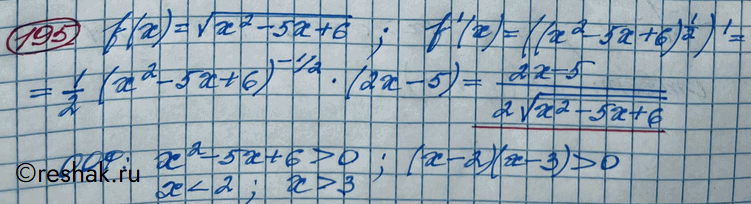 195 f(x)=√(x²-5x+6) ; f'(x)=((x²-5x+6)^(1/2))'=
= 1/2 (x²-5x+6)^(-1/2) · (2x-5) = (2x-5)/(2√(x²-5x+6))
x²-5x+6>0 ; (x-2)(x-3)>0
x<2 ; x>3
©reshak.ru